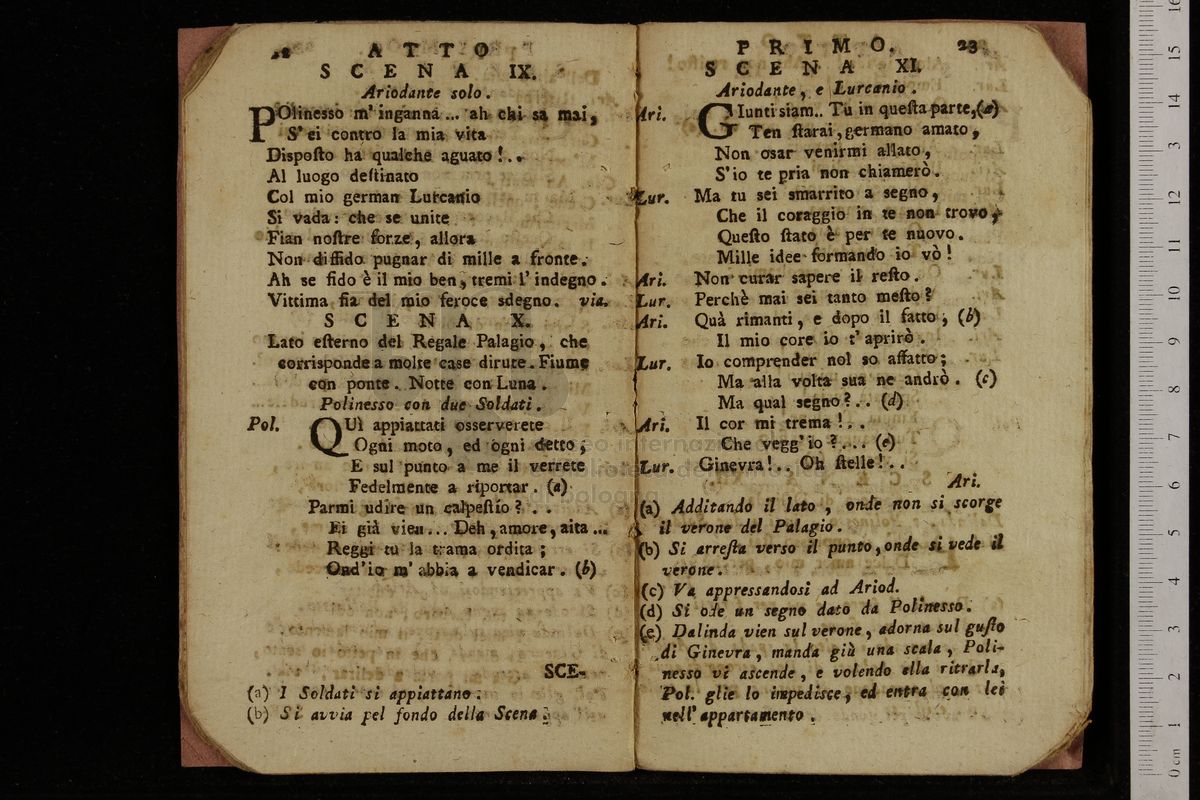 22 ATTO
SCENA IX.
Ariodante solo.
POlinesso m'inganna... ah chi sa mai,
S'ei contro la mia vita
Dispoſto ha qualche aguato!..
Al luogo deſtinato
Col mio german Lurcanio
Si vada: che se unite
Fian noſtre forze, allora
Non diffido pugnar di mille a fronte.
Ah se fido è il mio ben, tremi l'indegno.
Vittima fia del mio feroce sdegno. via.
SCENA X.
Lato eſterno del Regale Palagio, che
corrisponde a molte case dirute. Fiume
con ponte. Notte con Luna.
Polinesso con due Soldati.
Pol. QUì appiattati osserverete
Ogni moto, ed ogni detto;
E sul punto a me il verrete
Fedelmente a riportar. (a)
Parmi udire un calpeſtio? . .
Ei già vien... Deh, amore, aita...
Reggi tu la trama ordita;
Ond'io m'abbia a vendicar. (b)
SCE-
(a) I Soldati si appiattano.
(b) Si avvia pel fondo della Scena.
PRIMO. 23
SCENA XI.
Ariodante, e Lurcanio.
Ari. GIunti siam.. Tu in queſta parte,(a)
Ten ſtarai, germano amato,
Non osar venirmi allato,
S'io te pria non chiamerò.
Lur. Ma tu sei smarrito a segno,
Che il coraggio in te non trovo,
Queſto ſtato è per te nuovo.
Mille idee formando io vò!
Ari. Non curar sapere il reſto.
Lur. Perchè mai sei tanto meſto?
Ari. Quà rimanti, e dopo il fatto, (b)
Il mio core io t'aprirò.
Lur. Io comprender nol so affatto;
Ma alla volta sua ne andrò. (c)
Ma qual segno?.. (d)
Ari. Il cor mi trema!..
Che vegg'io?... (e)
Lur. Ginevra!.. Oh ſtelle!..
Ari.
(a) Additando il lato, onde non si scorge
il verone del Palagio.
(b) Si arreſta verso il punto, onde si vede il
verone.
(c) Va appressandosi ad Ariod.
(d) Si ode un segno dato da Polinesso.
(e) Dalinda vien sul verone, adorna sul guſto
di Ginevra, manda giù una scala, Poli-
nesso vi ascende, e volendo ella ritrarla,
Pol. glie lo impedisce, ed entra con lei
nell'appartamento.